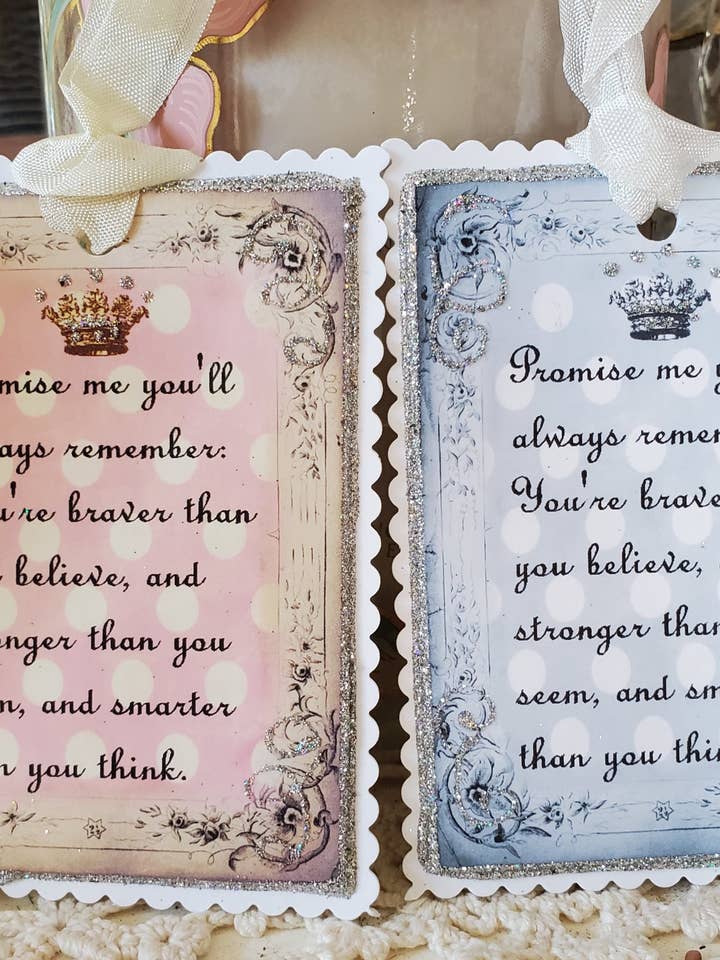 mise me you'll
ays remember:
u're braver than
believe, and
onger than you
m, and smarter
n you think.
Promise me y
always remem
You're brave
you believe,
stronger than
seem, and sm
than you thin